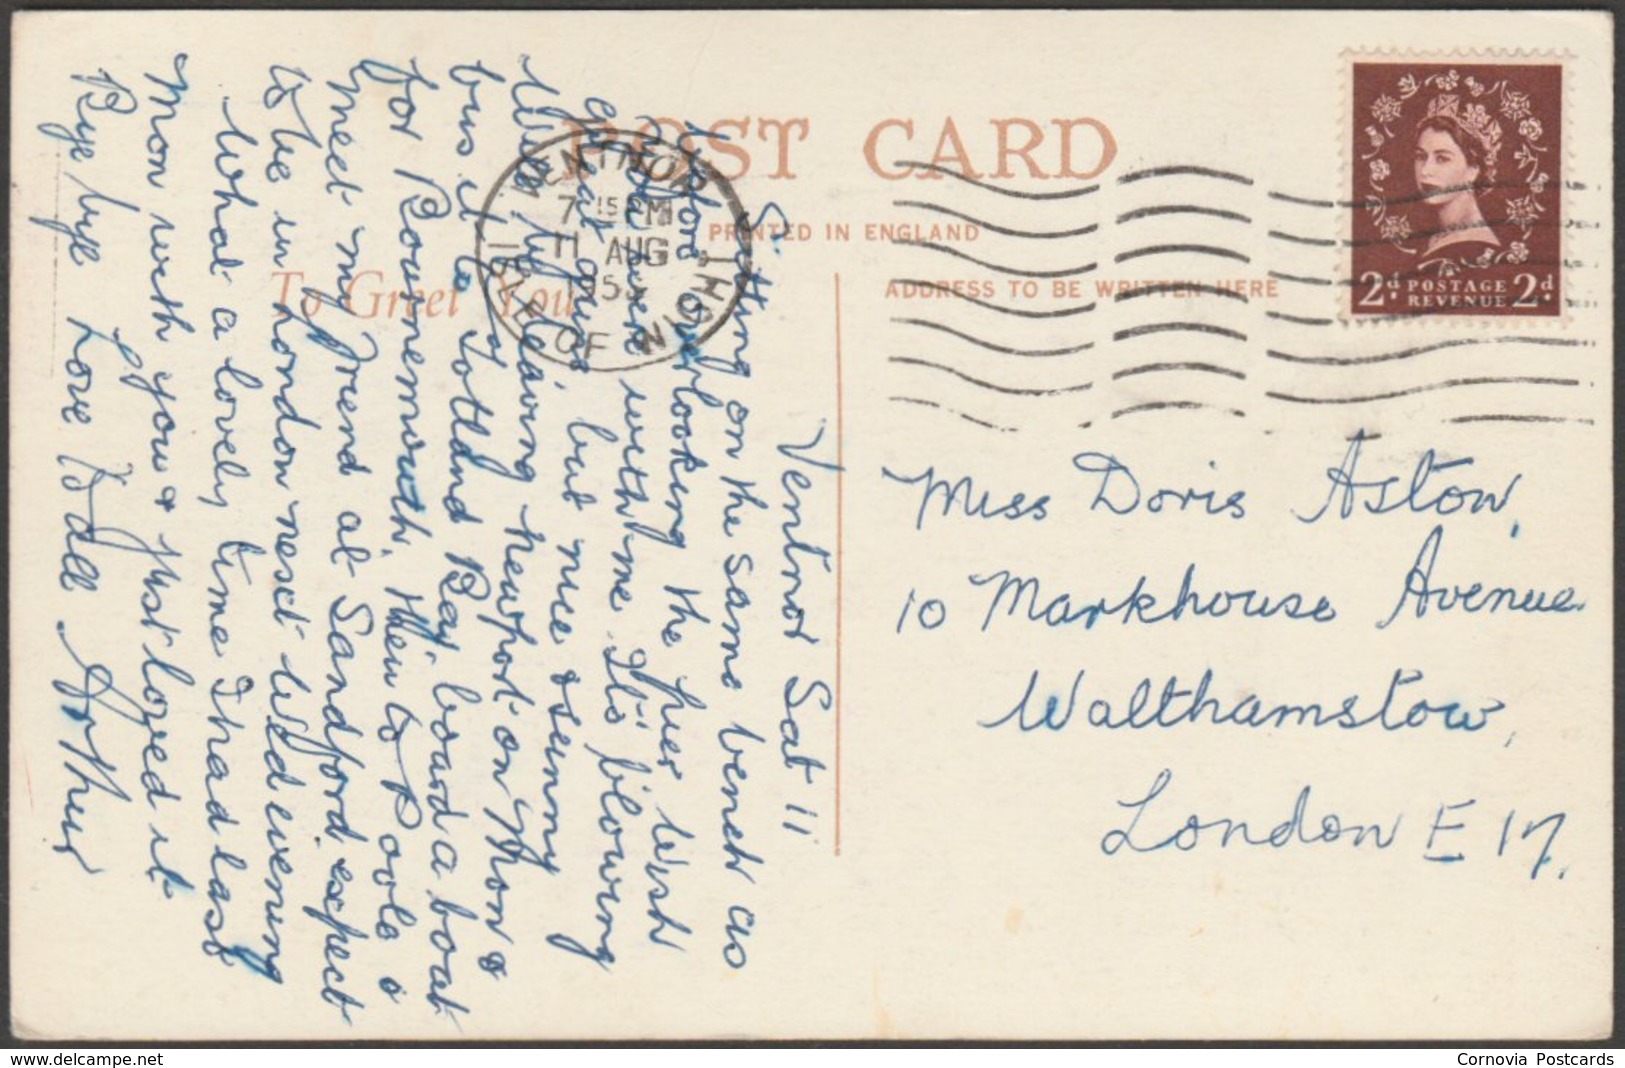 POST CARD
PRINTED IN ENGLAND
To Greet You
ADDRESS TO BE WRITTEN HERE
VENTNOR
7 15 PM
11 AUG
195
ISLE OF WIGHT
2d POSTAGE 2d
REVENUE
Ventnor Sat 11
Sitting on the same bench as
before overlooking the pier Wish
you were with me It's blowing
great guns but nice & sunny
Will be leaving Newport on Mon &
bus it to Totland Bay, board a boat
for Bournemouth, then to Poole &
meet my friend at Sandford. expect
to be in London next Wed evening
What a lovely time I had last
Mon with you & just loved it
Bye bye Love to all Arthur
Miss Doris Aston,
10 Markhouse Avenue
Walthamstow,
London E 17.
Cornovia Postcards
www.delcampe.net